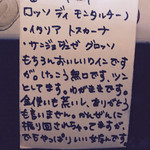 ロッソ ディ モンタルチーノ
・イタリア トスカーナ
・サンジョヴェーゼ グロッソ
もちろんおいしいワインです
が、けっこう無口です。ツン
としてます。のがきます。
金使いも荒いし、ありがとう
も言いません。かんぜんに
振り回されちゃってますが、
でもやっぱりいい女なんです